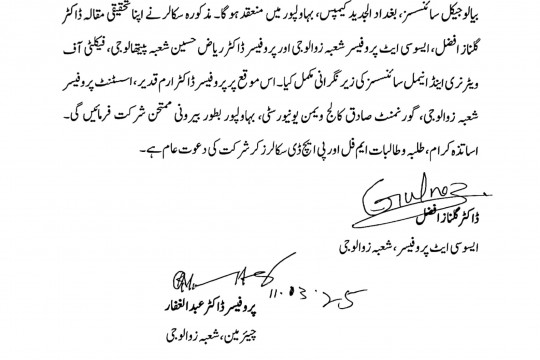 بیالوجیکل سائنسسز، بغداد الجدید کیمپس، بہاولپور میں منعقد ہوگا۔ مذکورہ سکالر نے اپنا تحقیقی مقالہ ڈاکٹر
گلناز افضل، ایسوسی ایٹ پروفیسر شعبہ زوالوجی اور پروفیسر ڈاکٹر ریاض حسین شعبہ پیتھالوجی، فیکلٹی آف
ویٹرنری اینڈ انیمل سائنسز کی زیر نگرانی مکمل کیا۔ اس موقع پر پروفیسر ڈاکٹر ارم قدیر، اسسٹنٹ پروفیسر
شعبہ زوالوجی، گورنمنٹ صادق کالج ویمن یونیورسٹی، بہاولپور بطور بیرونی ممتحن شرکت فرمائیں گی۔
اساتذہ کرام، طلبہ و طالبات ایم فل اور پی ایچ ڈی سکالرز کر شرکت کی دعوت عام ہے۔
Gulnaz
ڈاکٹر گلناز افضل
ایسوسی ایٹ پروفیسر، شعبہ زوالوجی
11.03.25
پروفیسر ڈاکٹر عبدالغفار
چیئرمین، شعبہ زوالوجی